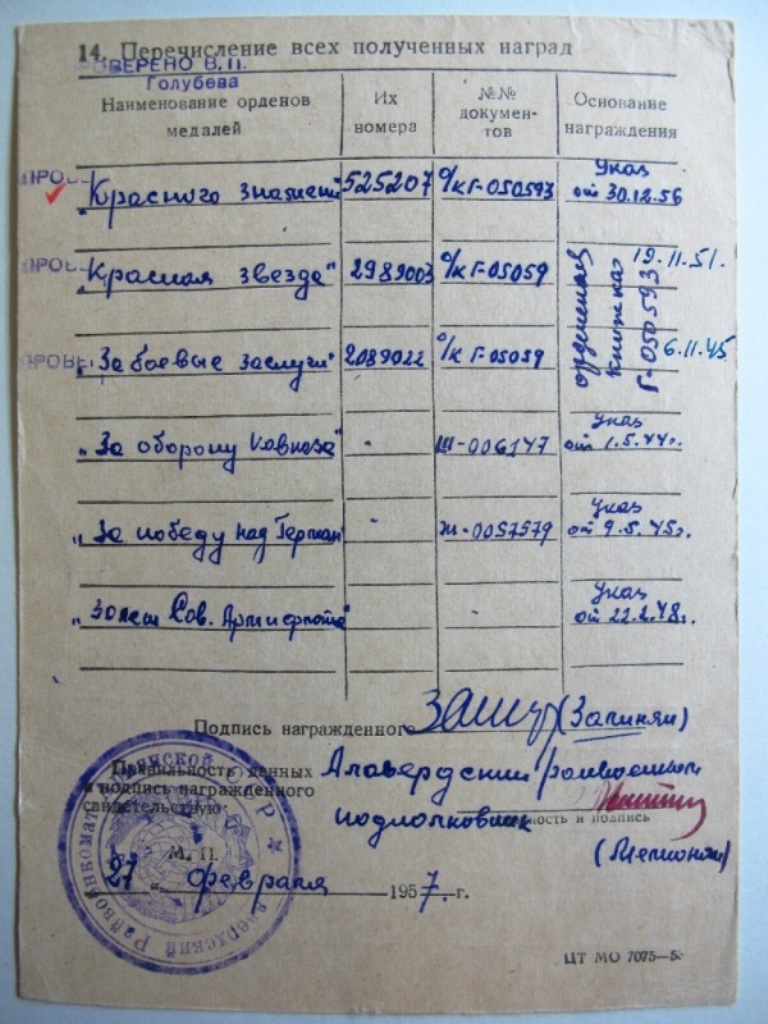 14. Перечисление всех полученных наград
ВЕРЕНО В. П.
Голубева
Наименование орденов медалей
Их номера
№№ документов
Основание награждения
ПРОВ
"Красного знамени" 525207 о/к Г-050593 Указ от 30.12.56
ПРОВ
"Красная звезда" 2989003 о/к Г-05059 19.11.51.
орденская книжка Г-050593
ПРОВЕ
"За боевые заслуги" 2089022 о/к Г-05059 6.11.45
"За оборону Кавказа" - Ш-006147 Указ от 1.5.44г.
"За победу над Герман - Ж-0057579 Указ от 9.5.45г.
"30 лет Сов. Арм и флота" - Указ от 22.2.48г.
Подпись награжденного (Запинян)
Правильность данных
и подпись награжденного
свидетельствую:
Алавердский райвоенком
подполковник
ность и подпись
М. П.
27 " февраля 1957. г.
ЦТ МО 7075—5